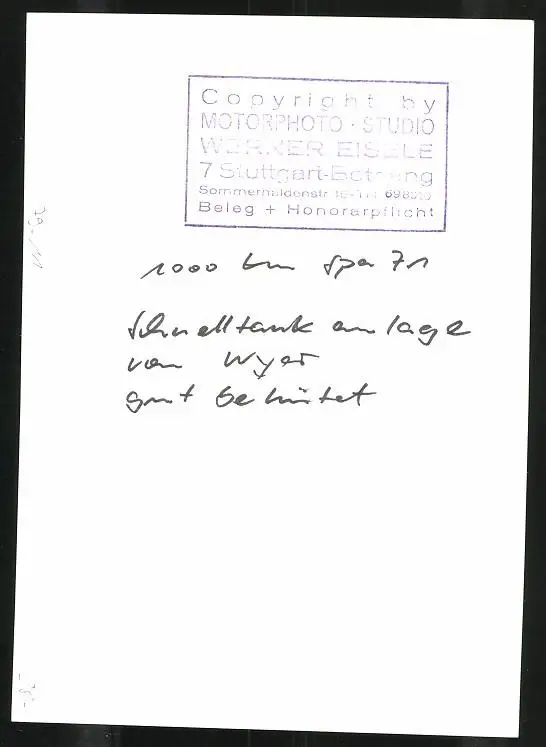 Copyright by
MOTORPHOTO · STUDIO
WERNER EISELE
7 Stuttgart-Botnang
Sommerhaldenstr
Beleg + Honorarpflicht
1000 km Spa 71
Schnelltankanlage
von Wyer
gut behütet